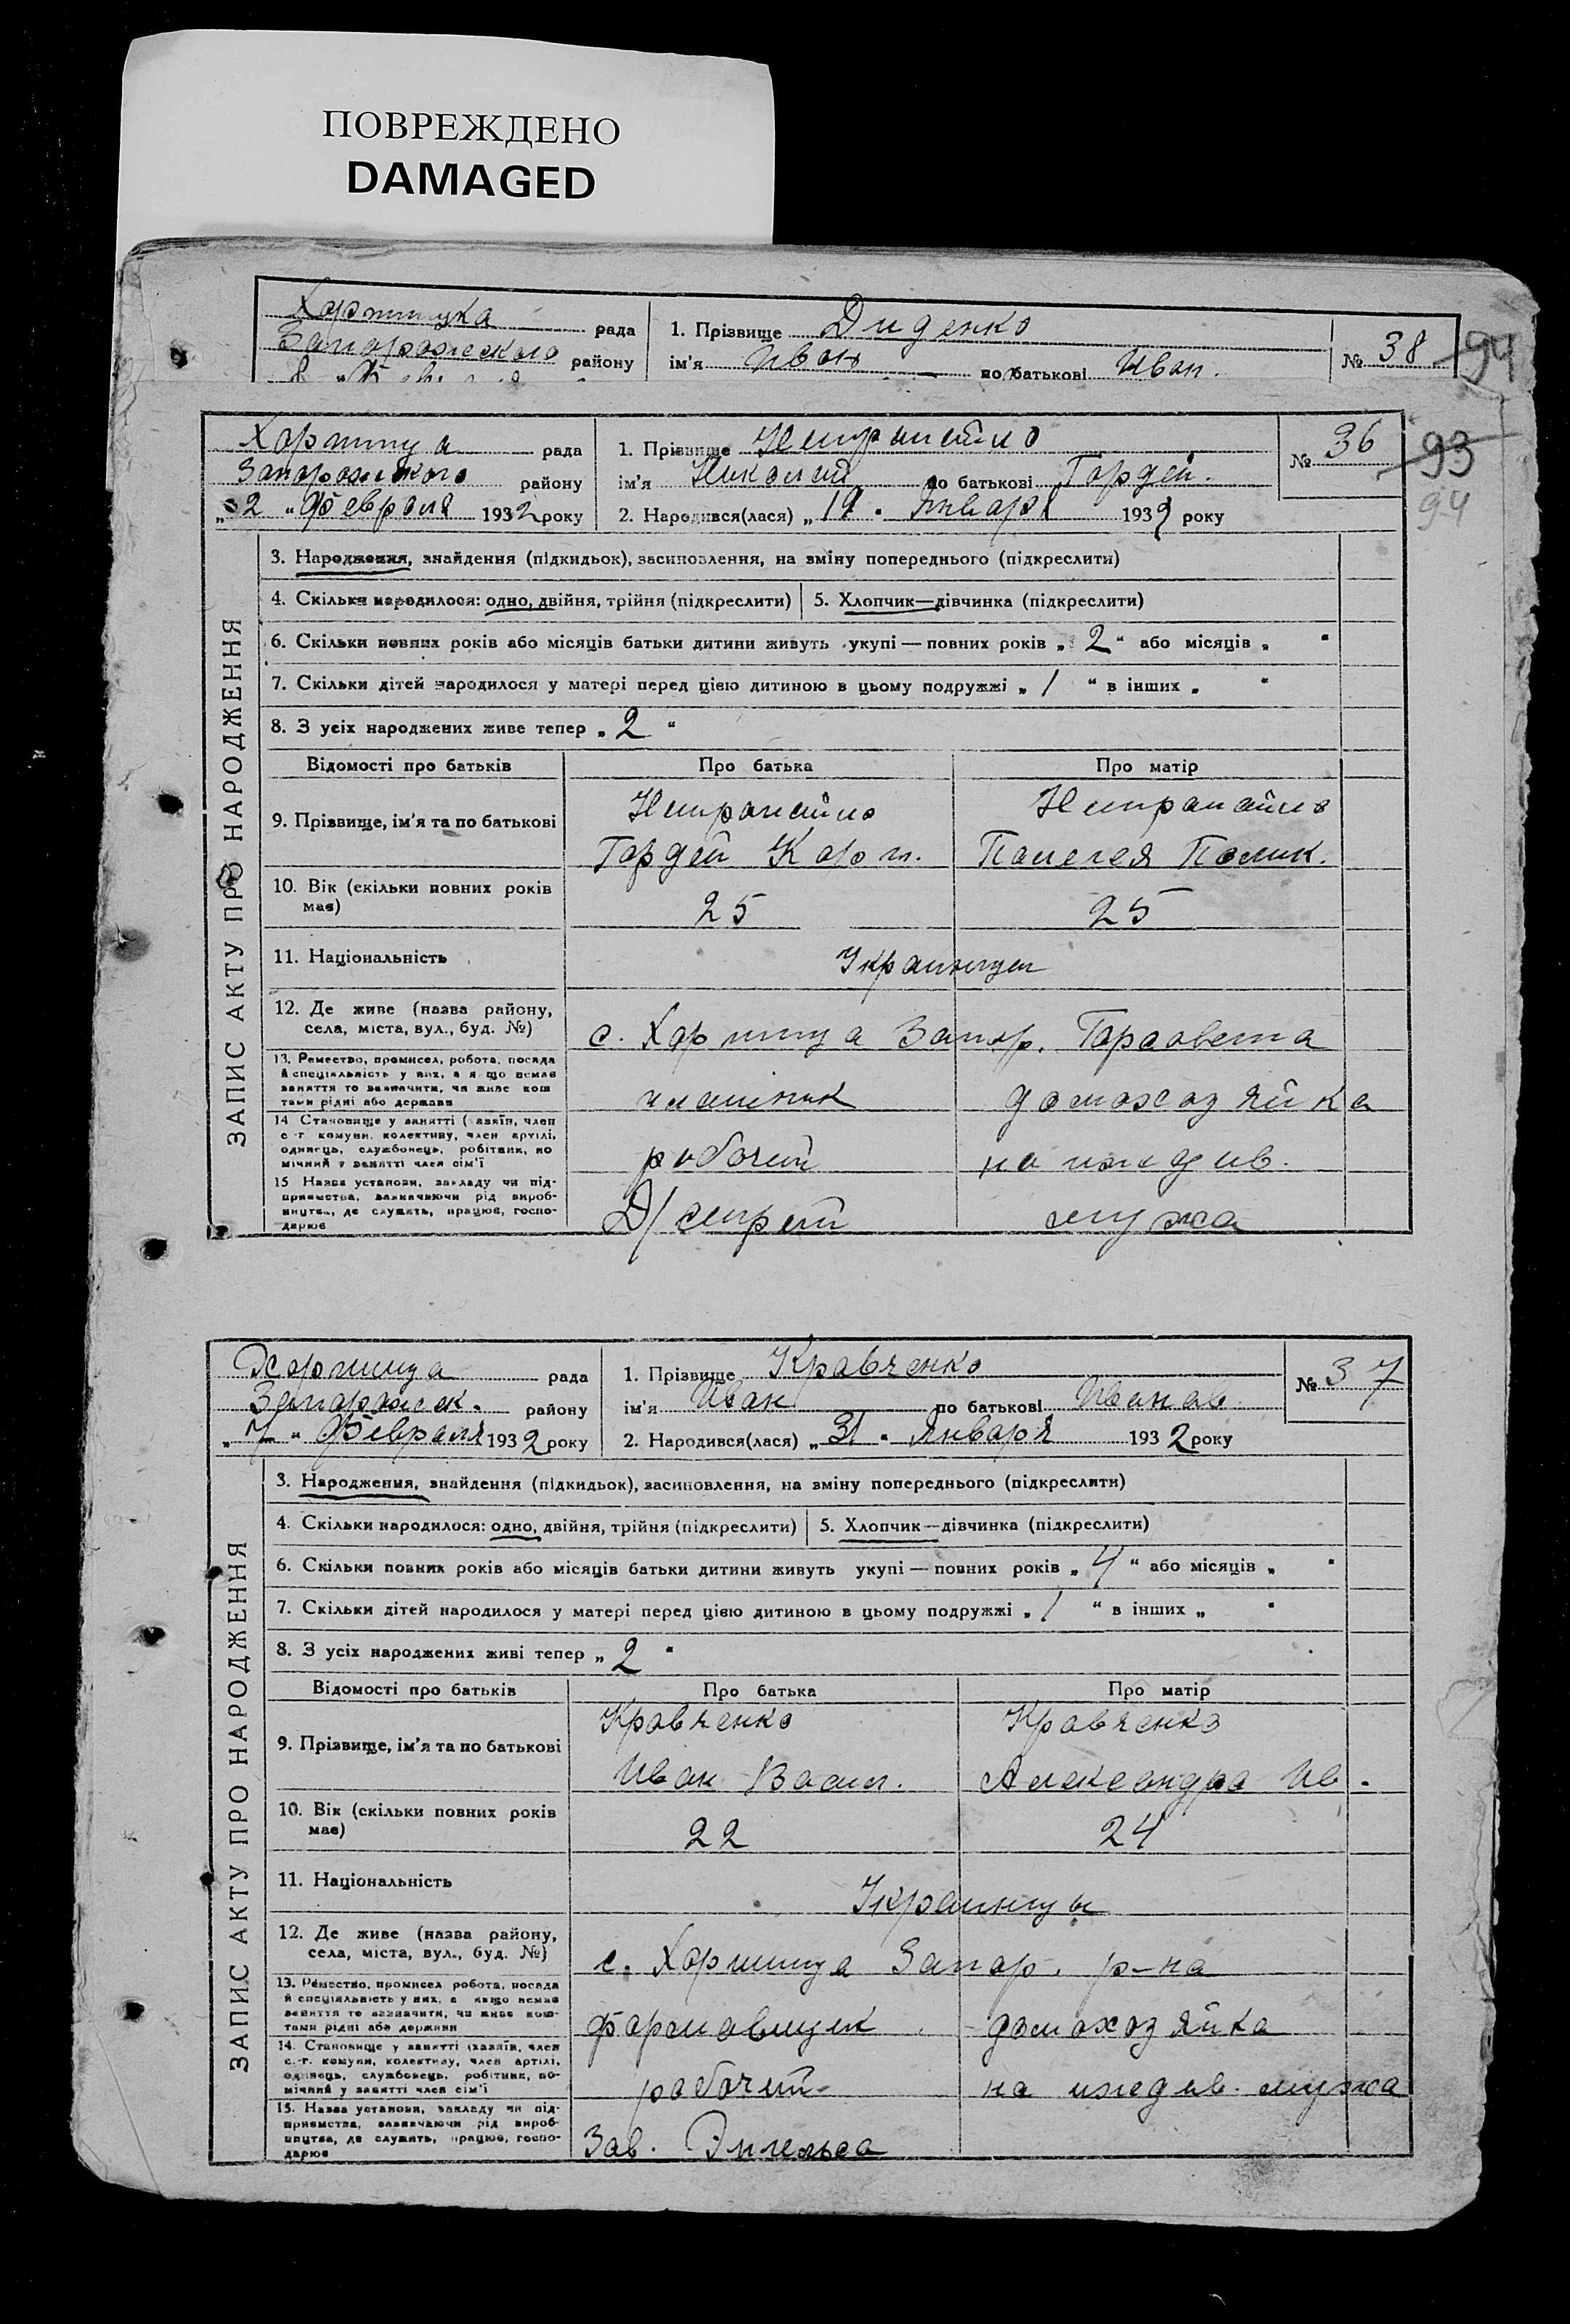 ПОВРЕЖДЕНО
DAMAGED
Хортицка рада
Запорожского району
1. Прізвище Диденко
ім'я Иван по батькові Иван.
№ 38
94
Хортица рада
Запорожского району
„2“ Февраля 1932 року
1. Прізвище
ім'я Николай по батькові Гордей.
2. Народився(лася) „19“ Января 1932 року
№ 36
93
94
ЗАПИС АКТУ ПРО НАРОДЖЕННЯ
3. Народження, знайдення (підкидьок), засиновлення, на зміну попереднього (підкреслити)
4. Скільки народилося: одно, двійня, трійня (підкреслити) 5. Хлопчик—дівчинка (підкреслити)
6. Скільки повних років або місяців батьки дитини живуть укупі — повних років „2“ або місяців „ “
7. Скільки дітей народилося у матері перед цією дитиною в цьому подружжі „1“ в інших „ “
8. З усіх народжених живе тепер „2“
Відомості про батьків Про батька Про матір
9. Прізвище, ім'я та по батькові
Гордей Карп. Пелагея Полик.
10. Вік (скільки повних років має) 25 25
11. Національність Украинцы
12. Де живе (назва району, села, міста, вул., буд. №) с. Хортица Запор. Горсовета
13. Ремество, промисел, робота, посада й спеціальність у них, а якщо немає заняття то зазначити, чи живе коштами рідні або держави домохозяйка
14 Становище у занятті (хазяїн, член с.-г. комуни, колективу, член артілі, одинець, службовець, робітник, помічний у занятті член сім'ї рабочий на иждив.
15 Назва установи, закладу чи підприємства, зазначаючи рід виробництва, де служить, працює, господарює Д/строй мужа
Хортица рада
Запорожск. району
„7“ Февраля 1932 року
1. Прізвище Кравченко
ім'я Иван по батькові Иванов.
2. Народився(лася) „31“ Января 1932 року
№ 37
ЗАПИС АКТУ ПРО НАРОДЖЕННЯ
3. Народження, знайдення (підкидьок), засиновлення, на зміну попереднього (підкреслити)
4. Скільки народилося: одно, двійня, трійня (підкреслити) 5. Хлопчик—дівчинка (підкреслити)
6. Скільки повних років або місяців батьки дитини живуть укупі — повних років „4“ або місяців „ “
7. Скільки дітей народилося у матері перед цією дитиною в цьому подружжі „1“ в інших „ “
8. З усіх народжених живі тепер „2“
Відомості про батьків Про батька Про матір
9. Прізвище, ім'я та по батькові Кравченко Кравченко
Иван Васил. Александра Ив.
10. Вік (скільки повних років має) 22 24
11. Національність Украинцы
12. Де живе (назва району, села, міста, вул., буд. №) с. Хортица Запор. р-на
13. Ремество, промисел робота, посада й спеціальність у них, а якщо немає заняття то зазначити, чи живе коштами рідні або держави формовщик домохозяйка
14. Становище у занятті (хазяїн, член с.-г. комуни, колективу, член артілі, одинець, службовець, робітник, помічний у занятті член сім'ї рабочий на иждив. мужа
15. Назва установи, закладу чи підприємства, зазначаючи рід виробництва, де служить, працює, господарює Зав. Энгельса